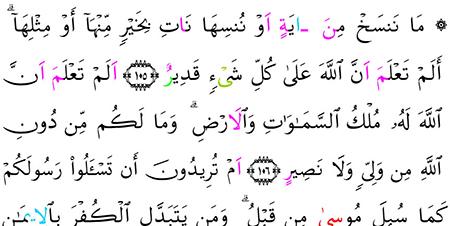 ۞ مَا نَنسَخْ مِنَ ـاٰيَةٍ اَوْ نُنسِهَا نَاتِ بِخَيْرٖ مِّنْهَآ أَوْ مِثْلِهَآۗ
أَلَمْ تَعْلَمَ اَنَّ اَللَّهَ عَلَىٰ كُلِّ شَےْءٖ قَدِيرٌ ١٠٥ اَلَمْ تَعْلَمَ اَنَّ
اَللَّهَ لَهُۥ مُلْكُ اُلسَّمَٰوَٰتِ وَالَارْضِۗ وَمَا لَكُم مِّن دُونِ
اِللَّهِ مِن وَلِيّٖ وَلَا نَصِيرٍ ١٠٦ اَمْ تُرِيدُونَ أَن تَسْـَٔلُواْ رَسُولَكُمْ
كَمَا سُئِلَ مُوسىٰ مِن قَبْلُۗ وَمَن يَتَبَدَّلِ اِلْكُفْرَ بِالِايمَٰنِ